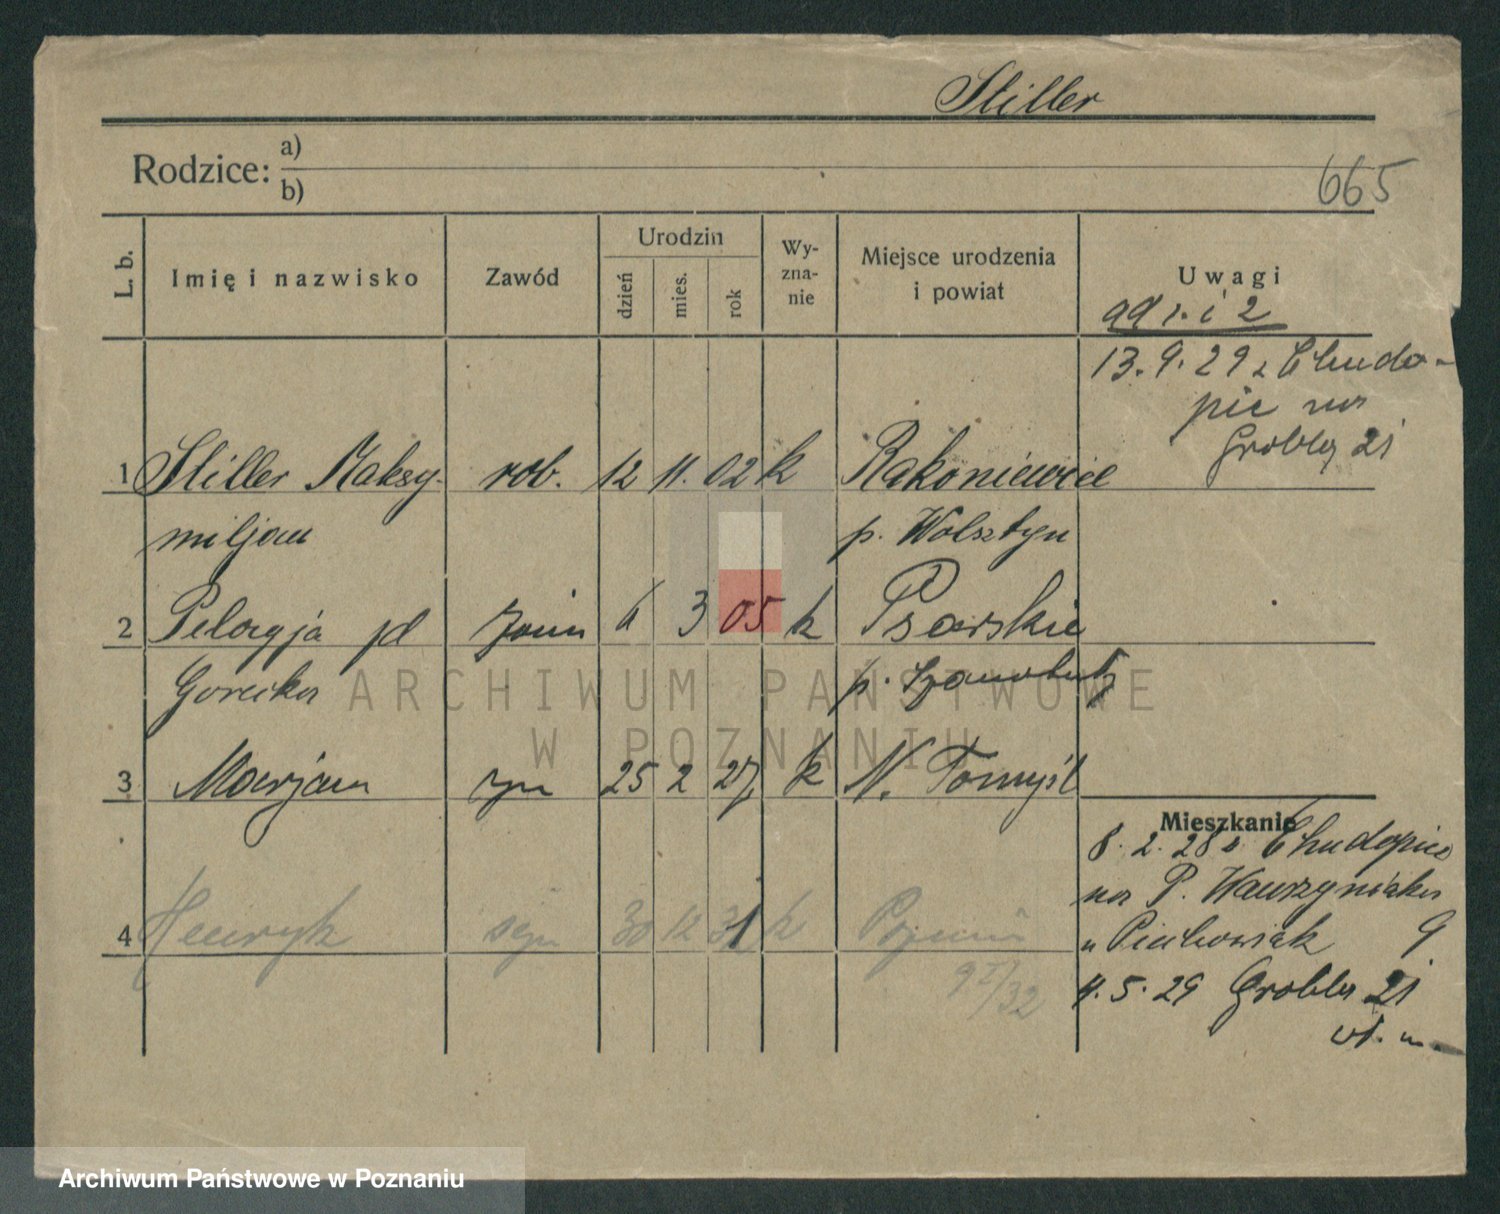 Stiller
Rodzice: a)
b)
665
L. b.
Imię i nazwisko
Zawód
Urodzin
dzień
mies.
rok
Wy-
zna-
nie
Miejsce urodzenia
i powiat
Uwagi
ad 1. i 2
13.9.29 z Chudo-
pic na
Grobla 21
1 Stiller Maksy- rob. 12 11. 02 k Rakoniewice
miljan p. Wolsztyn
2 Pelagja żona 6 3 05 k Psarskie
Gorecka p. Szamotuły
3 Marjan syn 25 2 27 k N. Tomyśl
Mieszkanie
8.2.28 z Chudopic
na P. Wawrzyniaka
u Piechowiak 9
4 Henryk syn 30 12 31 k Poznań
9 I/32
4.5.29 Grobla 21
ARCHIWUM PAŃSTWOWE
W POZNANIU
Archiwum Państwowe w Poznaniu